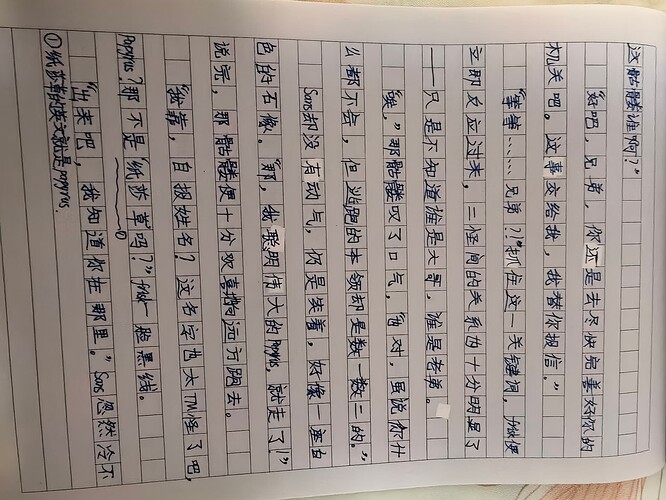 这骷髅谁啊？”
“好吧，兄弟，你还是去尽快完善好你的
机关吧。这事交给我，我替你报信。”
“等等……兄弟？！”抓住这一关键词，frisk便
立即反应过来，二怪间的关系十分明显了
——只是不知道谁是大哥，谁是老弟。
“唉，”那骷髅叹了口气，“也对，虽说你什
么都不会，但逃跑的本领却是数一数二的。”
Sans却没有动气，仍是笑着，好像一座白
色的石像。“那，我聪明伟大的Papyrus，就走了！”
说完，那骷髅便十分欢喜地向远方跑去。
“我靠，自报姓名？这名字也太TM怪了吧，
Papyrus？那不是“纸莎草①吗？”frisk一脸黑线。
“出来吧，我知道你在那里。”Sans忽然冷不
①纸莎草的英文就是papyrus.